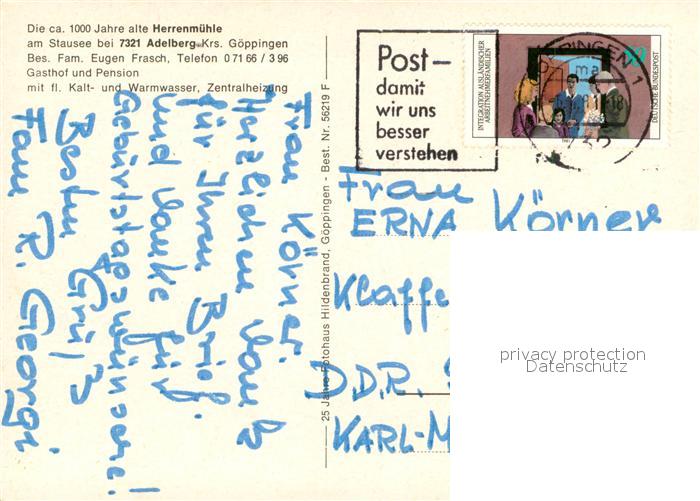 Die ca. 1000 Jahre alte Herrenmühle
am Stausee bei 7321 Adelberg Krs. Göppingen
Bes. Fam. Eugen Frasch, Telefon 0 71 66 / 3 96
Gasthof und Pension
mit fl. Kalt- und Warmwasser, Zentralheizung
Frau Körner.
Herzlichen Dank
für Ihren Brief.
und danke für
Geburtstagswünsche!
Besten Gruß
Fam R. Georgi
25 Jahre Fotohaus Hildenbrand, Göppingen - Best. Nr. 56219 F
Post–
damit
wir uns
besser
verstehen
INTEGRATION AUSLÄNDISCHER
ARBEITNEHMERFAMILIEN
50
DEUTSCHE BUNDESPOST
Frau
ERNA Körner
Klaffe
DDR
KARL-M
privacy protection
Datenschutz